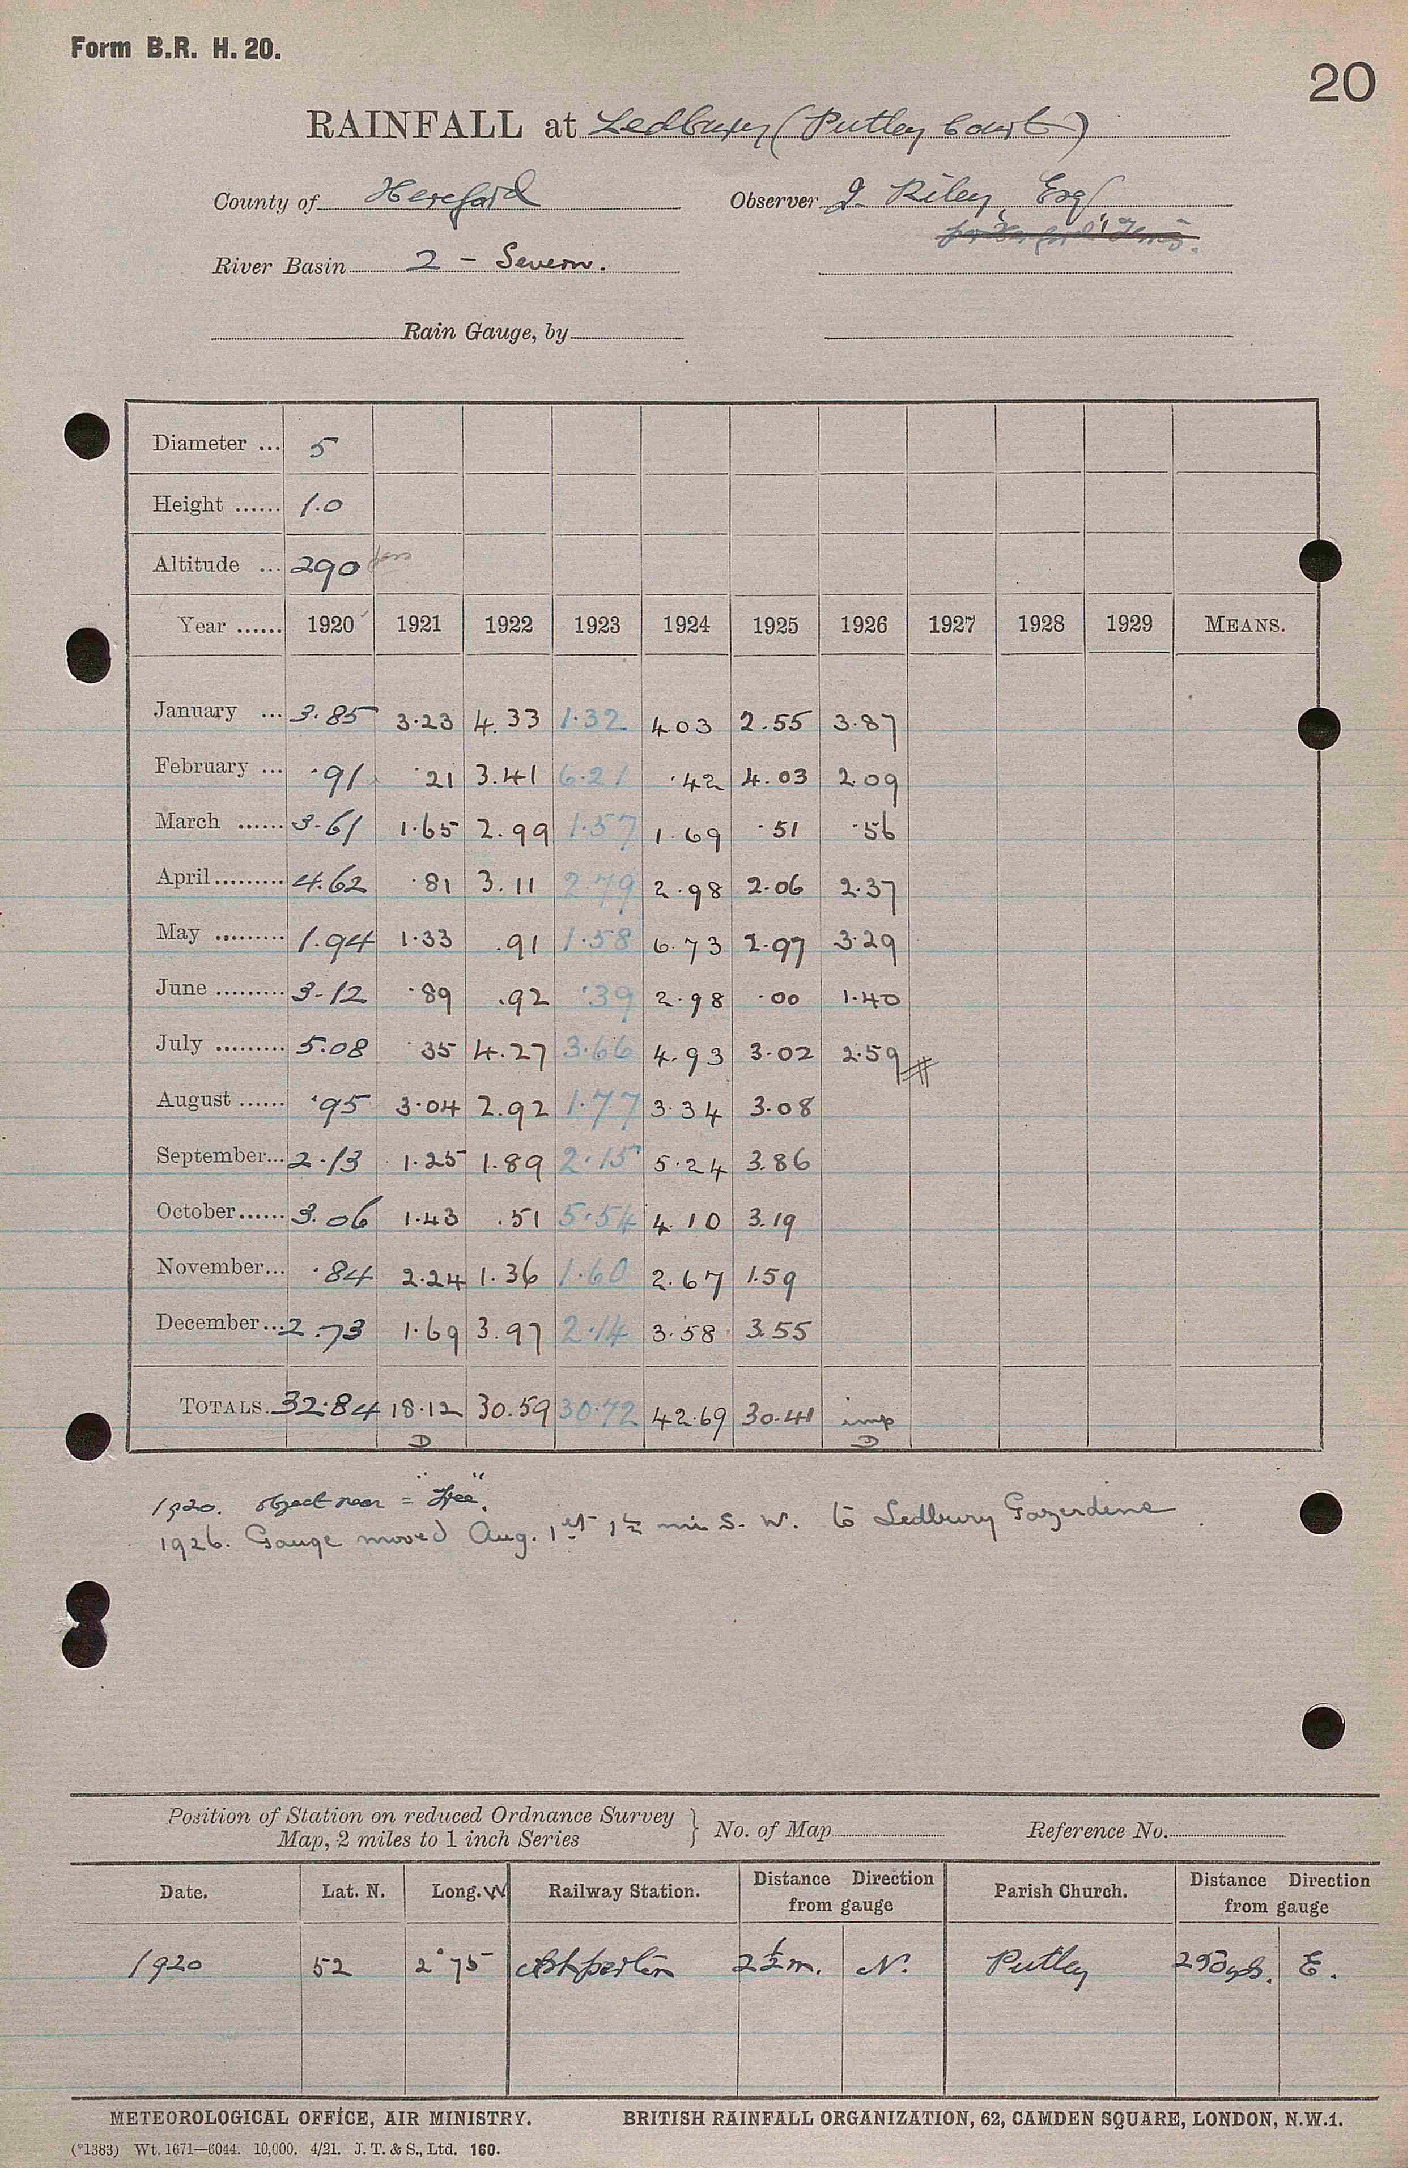 Form B.R. H. 20.
20
RAINFALL at Ledbury (Putley Court)
County of Hereford Observer J. Riley, Esq
River Basin 2 - Severn.
Rain Gauge, by
Diameter ... 5
Height ...... 1.0
Altitude ... 290
Year ...... 1920 1921 1922 1923 1924 1925 1926 1927 1928 1929 MEANS.
January ... 3.85 3.23 4.33 1.32 4.03 2.55 3.87
February ... .91 .21 3.41 6.21 .42 4.03 2.09
March ...... 3.61 1.65 2.99 1.57 1.69 .51 .56
April ......... 4.62 .81 3.11 2.79 2.98 2.06 2.37
May ......... 1.94 1.33 .91 1.58 6.73 2.97 3.29
June ......... 3.12 .89 .92 .39 2.98 .00 1.40
July ......... 5.08 .35 4.27 3.66 4.93 3.02 2.59
August ...... .95 3.04 2.92 1.77 3.34 3.08
September... 2.13 1.25 1.89 2.15 5.24 3.86
October...... 3.06 1.43 .51 5.54 4.10 3.19
November... .84 2.24 1.36 1.60 2.67 1.59
December... 2.73 1.69 3.97 2.14 3.58 3.55
TOTALS. 32.84 18.12 30.59 30.72 42.69 30.41 imp
D D
1920. object near = "Tree".
1926. Gauge moved Aug. 1st 1½ mi S. W. to Ledbury Gazerdine
Position of Station on reduced Ordnance Survey
Map, 2 miles to 1 inch Series } No. of Map Reference No.
Date. Lat. N. Long. W Railway Station. Distance Direction from gauge Parish Church. Distance Direction from gauge
1920 52 2°75 Ashperton 2½m. N. Putley 250yds. E.
METEOROLOGICAL OFFICE, AIR MINISTRY. BRITISH RAINFALL ORGANIZATION, 62, CAMDEN SQUARE, LONDON, N.W.1.
(*1383) Wt. 1671—6044. 10,000. 4/21. J. T. & S., Ltd. 160.